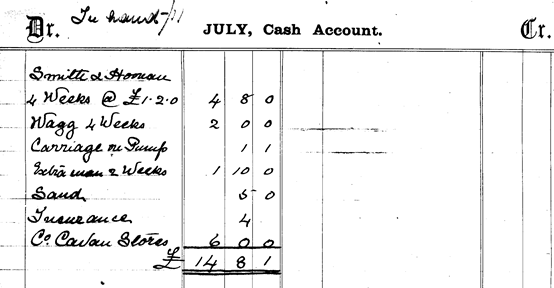 Dr. In hand /11 JULY, Cash Account. Cr.
Smith & Homan
4 Weeks @ £1·2·0 4 8 0
Wagg 4 Weeks 2 0 0
Carriage on Pump 1 1
Extra man 2 Weeks 1 10 0
Sand 5 0
Insurance 4
Co. Cavan Stores 6 0 0
£ 14 8 1